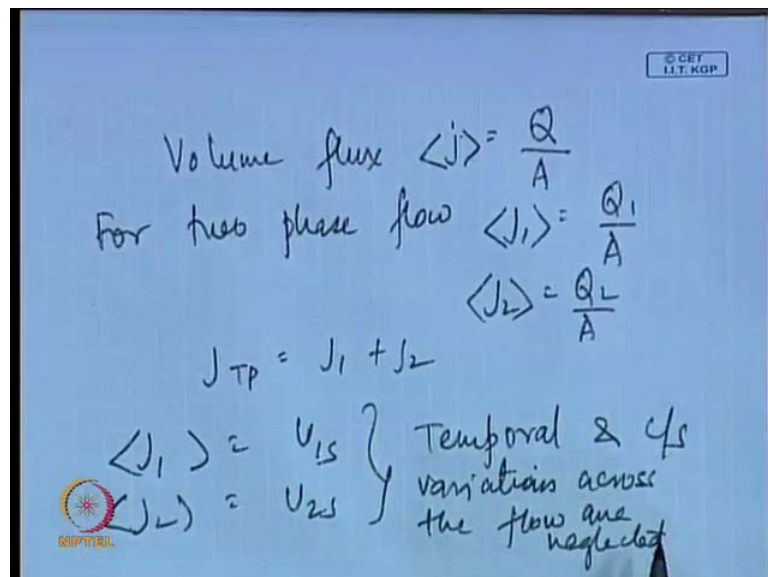 © CET
I.I.T. KGP
Volume flux <j> = Q/A
For two phase flow <J1> = Q1/A
<J2> = Q2/A
JTP = J1 + J2
<J1> = U1S } Temporal & c/s
<J2> = U2S } variations across
the flow are
neglected
NPTEL